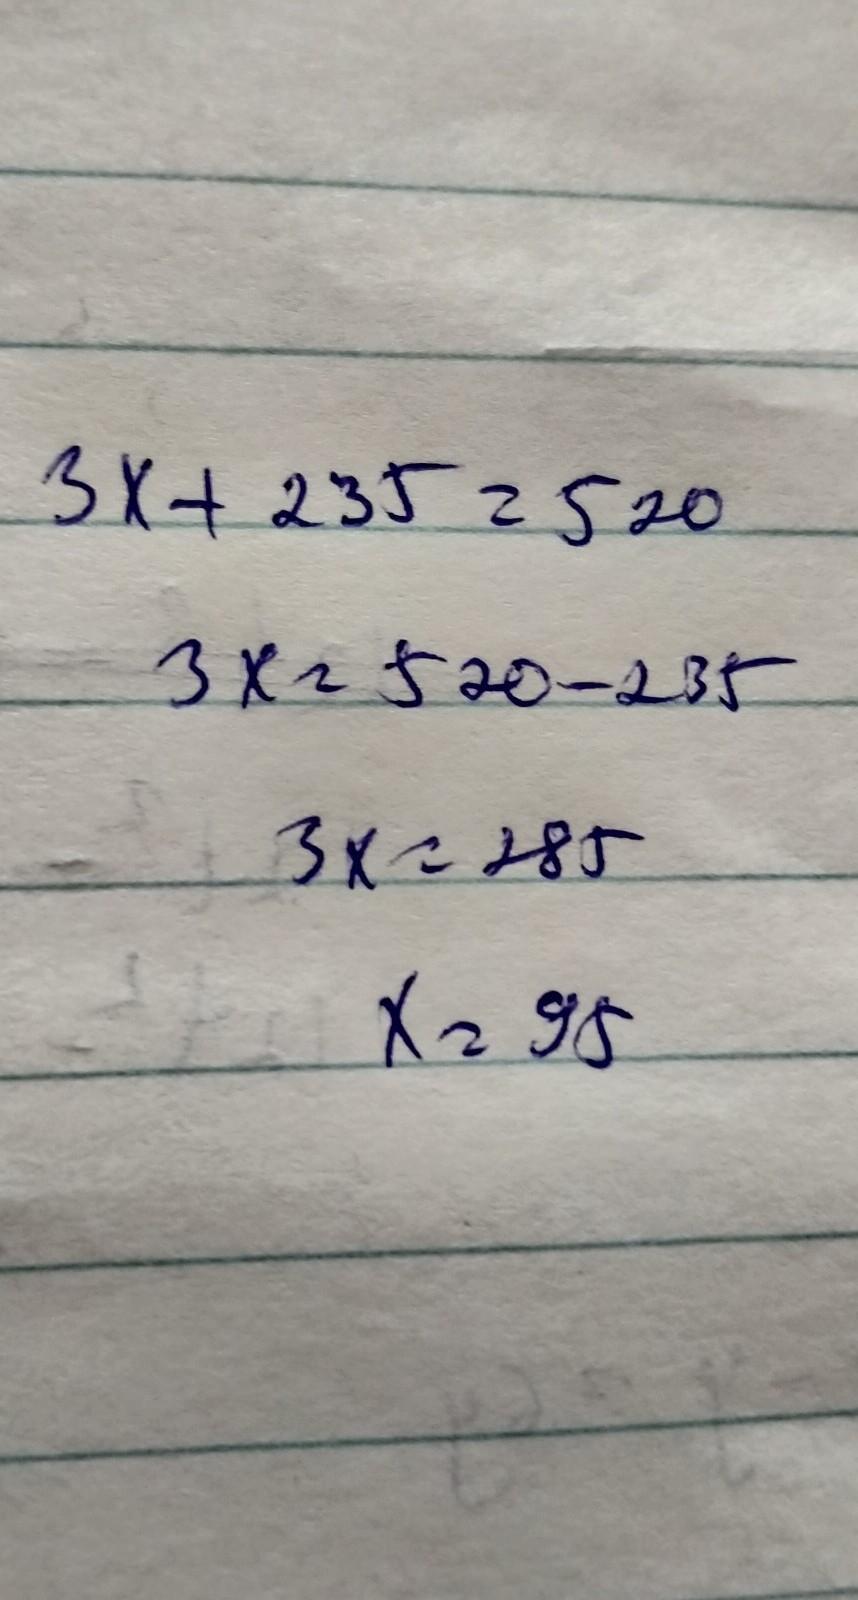 3x + 235 = 520
3x = 520 - 235
3x = 285
x = 95